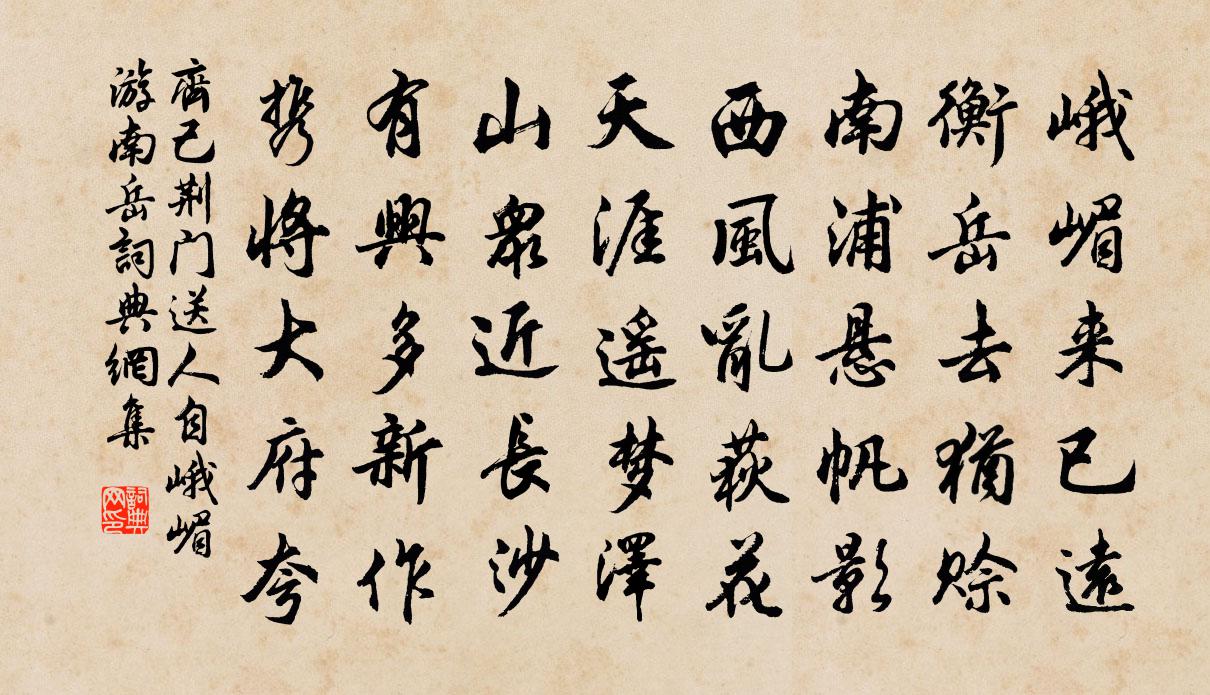 峨嵋来已遠
衡岳去猶赊
南浦悬帆影
西風亂荻花
天涯遥梦澤
山衆近長沙
有興多新作
携将大府夸
齊己荆门送人自峨嵋
游南岳詞典網集
詞典网印